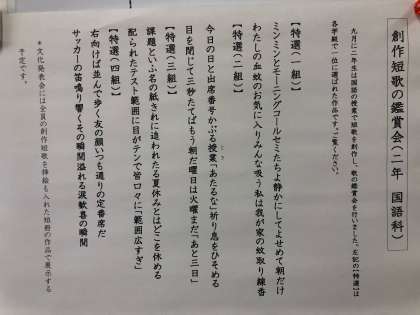 創作短歌の鑑賞会(二年 国語科)
九月に二年生は国語の授業で短歌を創作し、歌の鑑賞会を行いました。左記の【特選】は
各学級で一位に選ばれた作品です。ご覧ください。
【特選(一組)】
ミンミンとモーニングコールセミたちよ静かにしてよせめて朝だけ
わたしの血蚊のお気に入りみんな吸う私は我が家の蚊取り線香
【特選(二組)】
今日の日と出席番号かぶる授業「あたるな」祈り息をひそめる
目を閉じて三秒たてばもう朝だ曜日は火曜まだ「あと三日」
【特選(三組)】
課題といふ名の紙きれに追われたる夏休みとはどこを休める
配られたテスト範囲に目がテンで皆口々に「範囲広すぎ」
【特選(四組)】
右向けば並んで歩く友の顔いつも通りの定番席だ
サッカーの笛鳴り響くその瞬間溢れる涙歓喜の瞬間
*文化発表会には全員の創作短歌を挿絵も入れた短冊の作品で展示する
予定です。